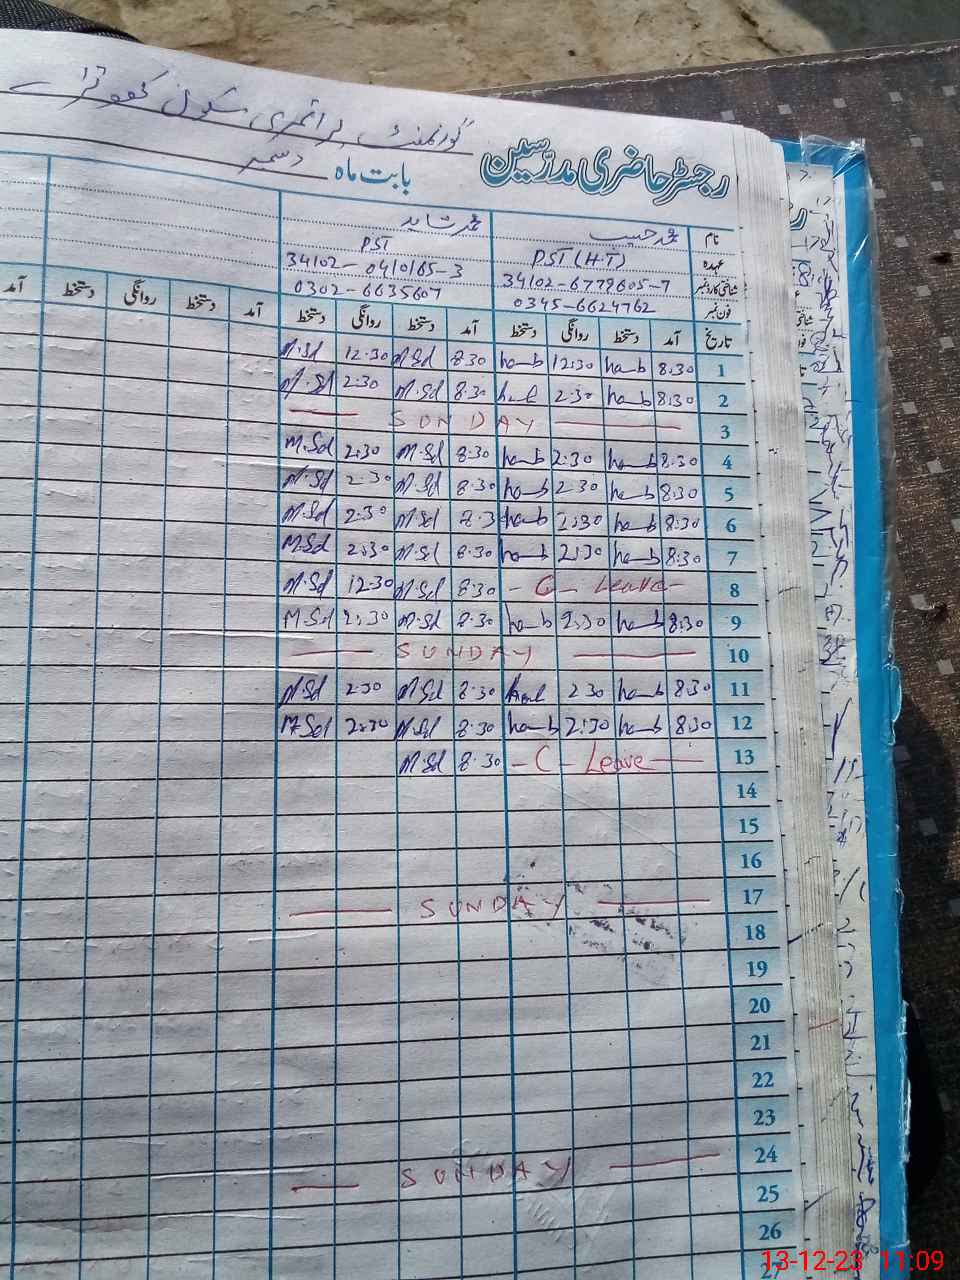 گورنمنٹ پرائمری سکول
رجسٹر حاضری مدرسین
بابت ماہ دسمبر
نام محمد حبیب محمد شاہد
عہدہ PST (H.T) PST
شناختی کارڈ نمبر 34102-6779605-7 34102-0410165-3
فون نمبر 0345-6624762 0302-6635607
تاریخ آمد دستخط روانگی دستخط آمد دستخط روانگی دستخط آمد دستخط روانگی دستخط آمد
1 8:30 hamb 12:30 hamb 8:30 M.Sd 12:30 M.Sd
2 8:30 hamb 2:30 8:30 M.Sd 2:30 M.Sd
3 SUNDAY
4 8:30 hamb 2:30 hamb 8:30 M.Sd 2:30 M.Sd
5 8:30 hamb 2:30 hamb 8:30 M.Sd 2:30 M.Sd
6 8:30 hamb 2:30 hamb 8:3 M.Sd 2:30 M.Sd
7 8:30 hamb 2:30 hamb 8:30 M.Sd 2:30 M.Sd
8 - C - Leave - 8:30 M.Sd 12:30 M.Sd
9 8:30 hamb 2:30 hamb 8:30 M.Sd 2:30 M.Sd
10 SUNDAY
11 8:30 hamb 2:30 8:30 M.Sd 2:30 M.Sd
12 8:30 hamb 2:30 hamb 8:30 M.Sd 2:30 M.Sd
13 - C - Leave - 8:30 M.Sd
14
15
16
17 SUNDAY
18
19
20
21
22
23
24 SUNDAY
25
26
27
13-12-23 11:09